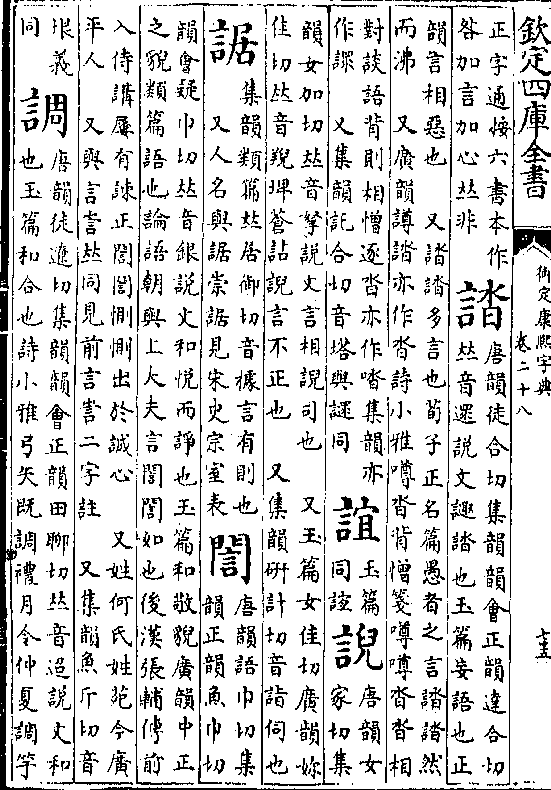 欽定四庫全書
御定康熙字典
卷二十八
七五
正字通按六書本作
咎加言加心𠀤非
誻
唐韻徒合切集韻韻會正韻達合切
𠀤音遝說文䜚誻也玉篇妄語也正
韻言相惡也 又誻誻多言也荀子正名篇愚者之言誻誻然
而沸 又廣韻譐誻亦作沓詩小雅噂沓背憎箋噂噂沓沓相
對談語背則相憎逐沓亦作㗳集韻亦
作䜚 又集韻託合切音塔與䜚同
誼
玉篇
同誼
䛏
唐韻女
家切集
韻女加切𠀤音拏說文言相䛏司也 又玉篇女佳切廣韻妳
佳切𠀤音羺埤蒼詀䛏言不正也 又集韻研計切音詣伺也
誳
集韻類篇𠀤居御切音據言有則也
又人名與誳崇誳見宋史宗室表
誾
唐韻語巾切集
韻正韻魚巾切
韻會疑巾切𠀤音銀說文和悅而諍也玉篇和敬貌廣韻中正
之貌類篇語也論語朝與上大夫言誾誾如也後漢張輔傳前
入侍講屢有諫正誾誾惻惻出於誠心 又姓何氏姓苑今廣
平人 又與言訔𠀤同見前言訔二字註 又集韻魚斤切音
垠義
同
調
唐韻徒遼切集韻韻會正韻田聊切𠀤音迢說文和
也玉篇和合也詩小雅弓矢既調禮月令仲夏調竽